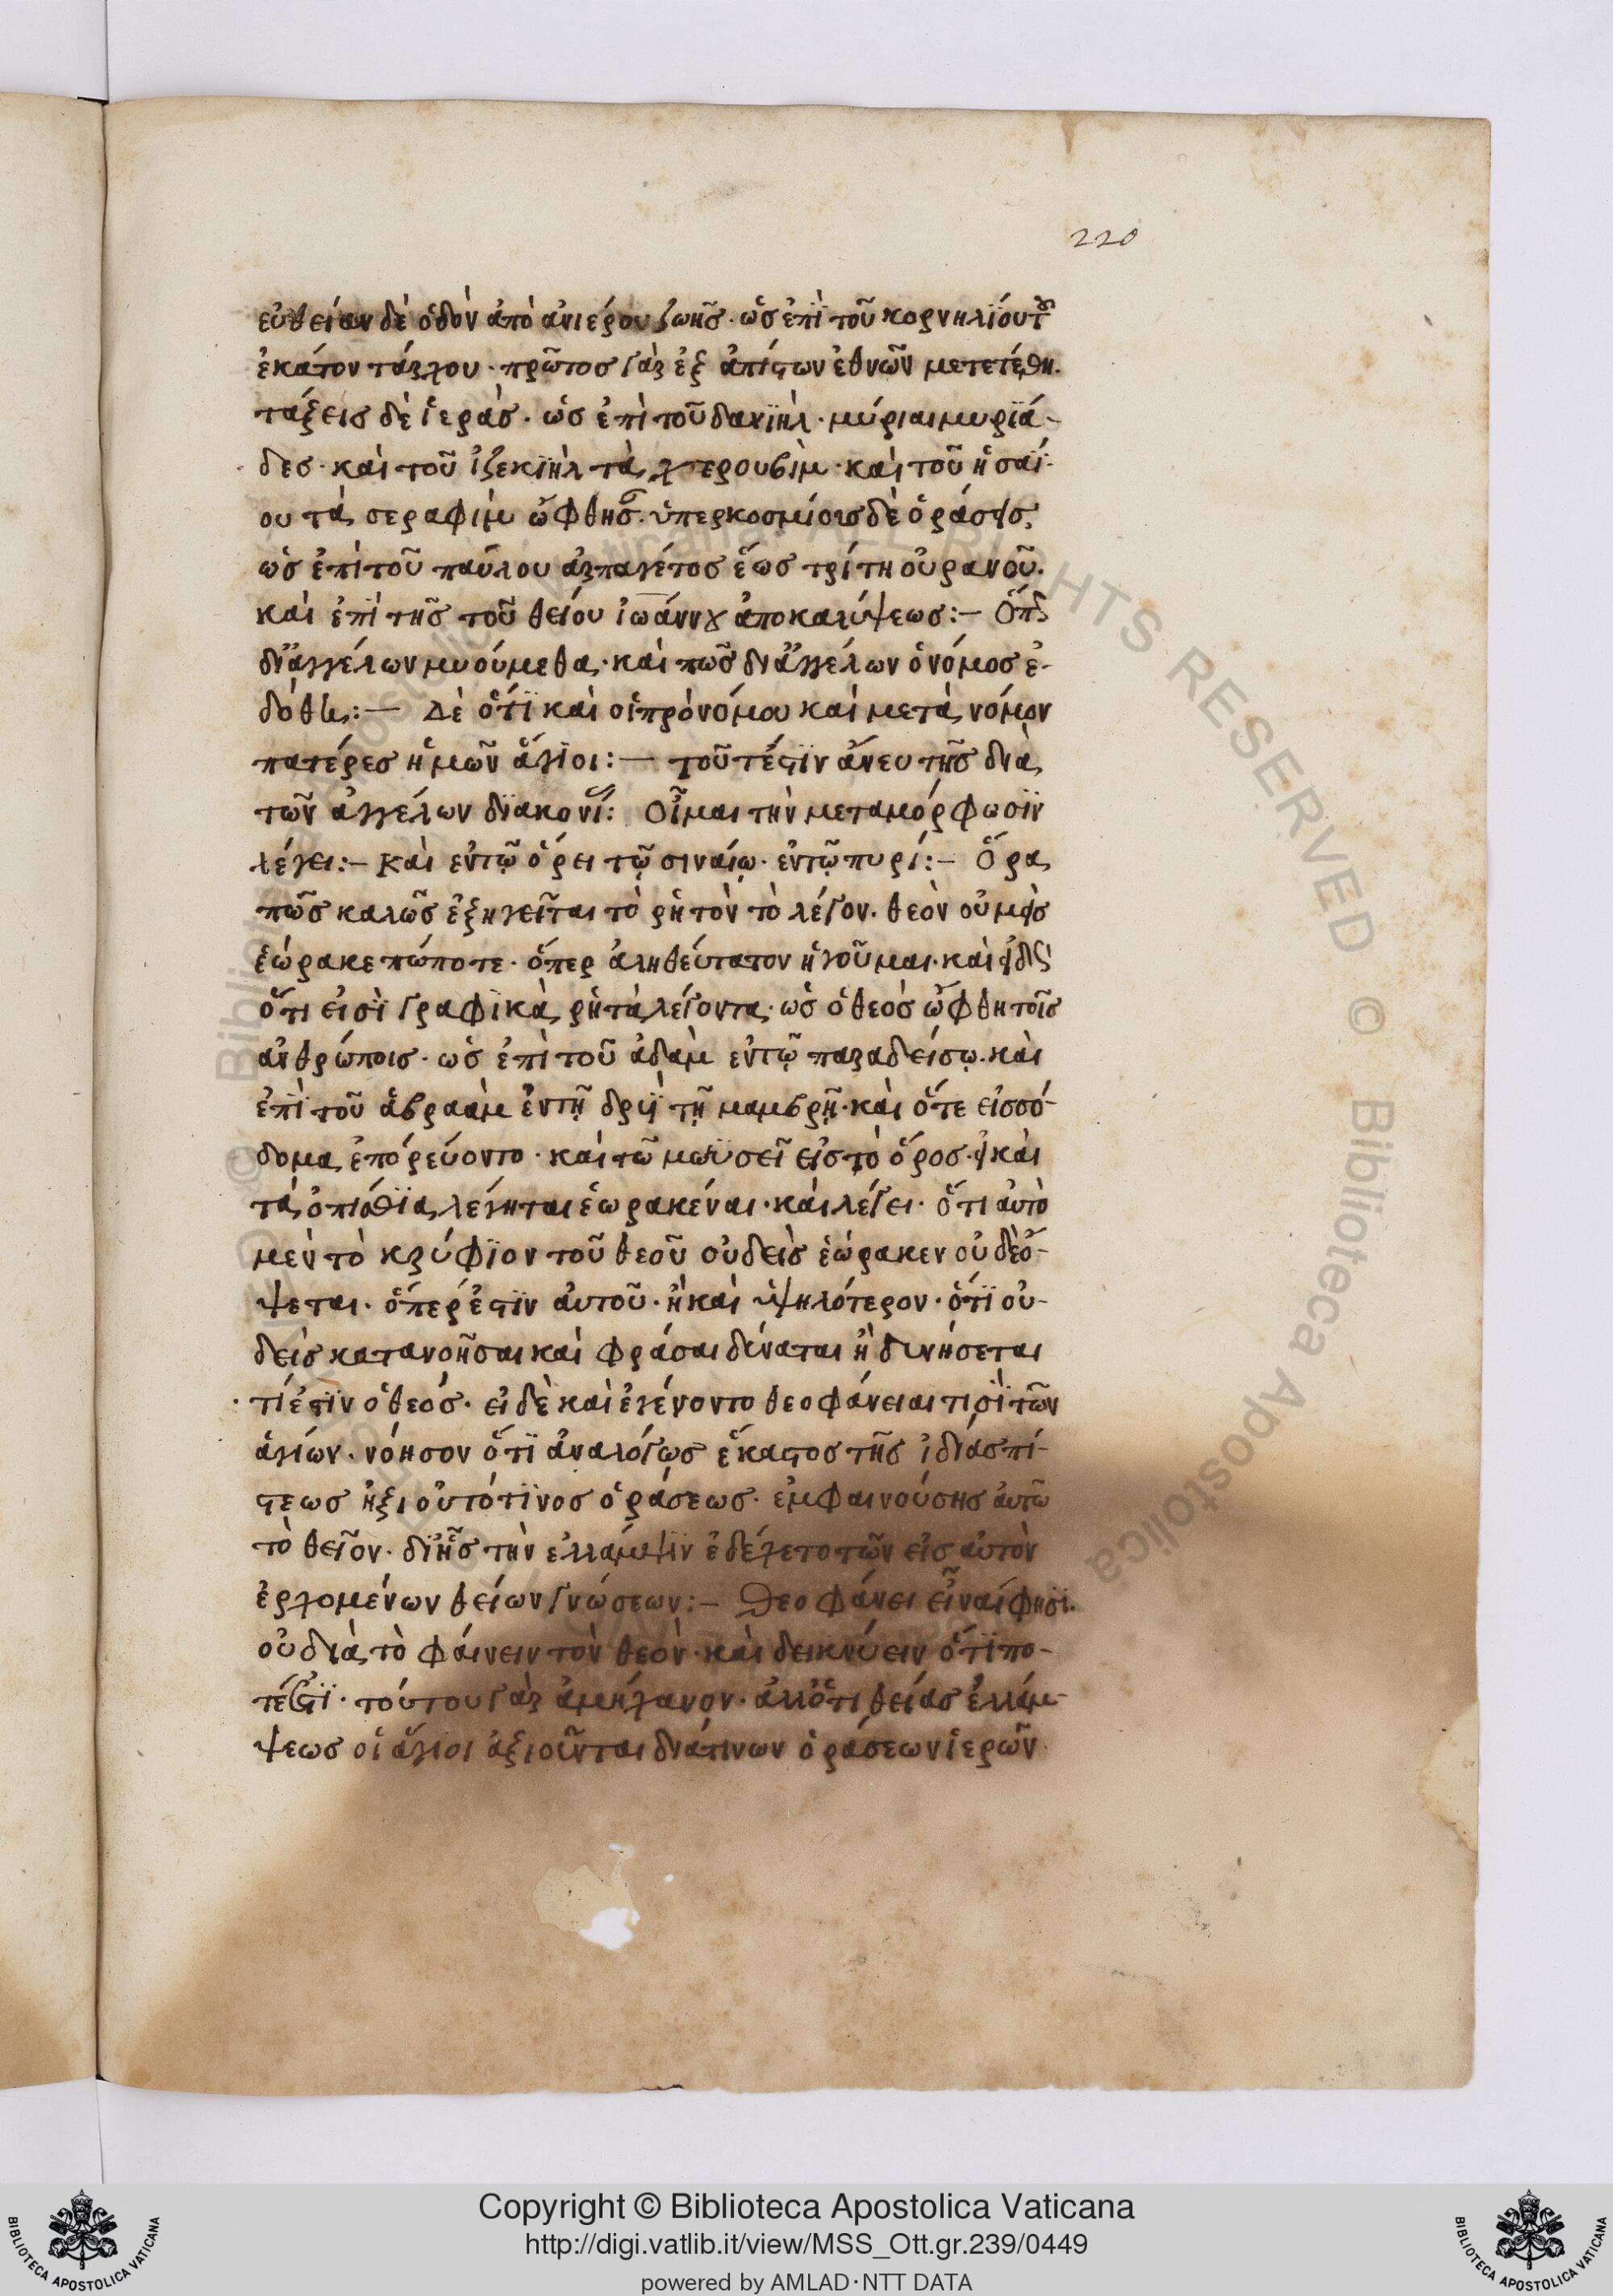 220
εὐθείαν δὲ ὁδὸν ἀπὸ ἀνιέρου ζωῆς· ὡς ἐπὶ τοῦ κορνηλίου τοῦ
ἑκατοντάρχου· πρῶτος γὰρ ἐξ ἀπίστων ἐθνῶν μετετέθη.
τάξεις δὲ ἱεράς· ὡς ἐπὶ τοῦ δανϊὴλ· μύριαι μυρϊά-
δες· καὶ τοῦ ἰζεκϊὴλ τὰ χερουβὶμ· καὶ τοῦ ἡσαΐ-
ου τὰ σεραφὶμ ὤφθησ. ὑπερκοσμίοις δὲ ὁράσεσ,
ὡς ἐπὶ τοῦ παύλου ἁρπαγέντος ἕως τρίτη οὐρανοῦ.
καὶ ἐπῒ τῆς τοῦ θείου ἰωάννου ἀποκαλύψεως:–
δι' ἀγγέλων μυούμεθα· καὶ πῶς δι' ἀγγέλων ὁ νόμος ἐ-
δόθη:– Δὲ ὅτϊ καὶ οἱ πρὸ νόμου καὶ μετὰ νόμον
πατέρες ἡμῶν ἅγϊοι:– τοῦτέστϊν ἄνευ τῆς διὰ
τῶν ἀγγέλων δϊακονί: Οἶμαι τὴν μεταμόρφωσϊν
λέγει:– Καὶ ἐν τῷ ὄρει τῷ σιναίῳ· ἐν τῷ πυρί:– Ὅρα
πῶς καλῶς ἐξηγεῖται τὸ ῥητὸν τὸ λέγον· θεὸν οὐδεὶς
ἑώρακε πώποτε· ὅπερ ἀληθέστατον ἡγοῦμαι· καὶ
ὅτι εἰσῒ γραφϊκὰ ῥητὰ λέγοντα· ὡς ὁ θεὸς ὤφθη τοῖς
ἀνθρώποις· ὡς ἐπὶ τοῦ ἀδὰμ ἐν τῷ παραδείσῳ· καὶ
ἐπῒ τοῦ ἀβραὰμ ἐν τῇ δρυῒ τῇ μαμβρῇ· καὶ ὅτε εἰς σό-
δομα ἐπορεύοντο· καὶ τῶ μωϋσεῖ εἰς τὸ ὄρος· καὶ
τὰ ὀπίσθϊα λέγηται ἑωρακέναι· καὶ λέγει· ὅτι αὐτὸ
μὲν τὸ κρύφϊον τοῦ θεοῦ οὐδεὶς ἑώρακεν οὐδὲ ὄ-
ψεται· ὅπερ ἐστϊν αὐτοῦ· ἢ καὶ ὑψηλότερον· ὅτϊ οὐ-
δεὶς κατανοῆσαι καὶ φράσαι δύναται ἢ δυνήσεται
τί ἐστϊν ὁ θεός· εἰ δὲ καὶ ἐγένοντο θεοφάνειαι τισῒ τῶν
ἁγίων· νόησον ὅτϊ ἀναλόγως ἕκαστος τῆς ἰδίας πί-
στεως ἠξιοῦτό τϊνος ὁράσεως· ἐμφαινούσης αὐτῶ
τὸ θεῖον· δϊ' ἧς τὴν ἔλλαμψϊν ἐδέχετο τῶν εἰς αὐτὸν
ἐρχομένων θείων γνώσεων:– Θεοφάνει εἶναί φησϊ.
οὐ διὰ τὸ φαίνειν τὸν θεὸν· καὶ δεικνύειν ὅτϊ πο-
τέ ἐστϊ· τούτου γὰρ ἀμήχανον· ἀλλ' ὅτι θείας ἐλλάμ-
ψεως οἱ ἅγιοι ἀξιοῦνται διά τινων ὁράσεων ἱερῶν
© Biblioteca Apostolica Vaticana. ALL RIGHTS RESERVED © Biblioteca Apostolica
Copyright © Biblioteca Apostolica Vaticana
http://digi.vatlib.it/view/MSS_Ott.gr.239/0449
powered by AMLAD·NTT DATA
BIBLIOTECA APOSTOLICA VATICANA
BIBLIOTECA APOSTOLICA VATICANA